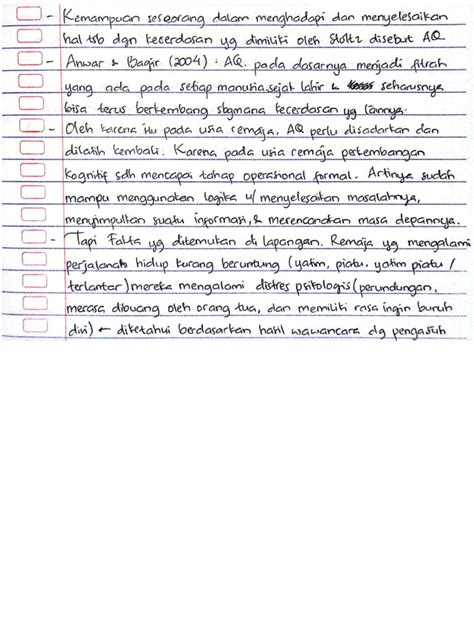 - Kemampuan seseorang dalam menghadapi dan menyelesaikan
hal tsb dgn kecerdasan yg dimiliki oleh Stoltz disebut AQ.
- Anwar & Bagir (2004) : AQ. pada dasarnya menjadi fitrah
yang ada pada setiap manusia sejak lahir & seharusnya
bisa terus berkembang sbgmana kecerdasan yg lainnya.
- Oleh karena itu pada usia remaja, AQ perlu disadarkan dan
dilatih kembali. Karena pada usia remaja perkembangan
kognitif sdh mencapai tahap operasional formal. Artinya sudah
mampu menggunakan logika u/ menyelesaikan masalahnya,
menyimpulkan suatu informasi, & merencanakan masa depannya.
- Tapi Fakta yg ditemukan di lapangan. Remaja yg mengalami
perjalanan hidup kurang beruntung (yatim, piatu, yatim piatu /
terlantar) mereka mengalami distres psikologis (perundungan,
merasa dibuang oleh orang tua, dan memiliki rasa ingin bunuh
diri) ← diketahui berdasarkan hasil wawancara dg pengasuh